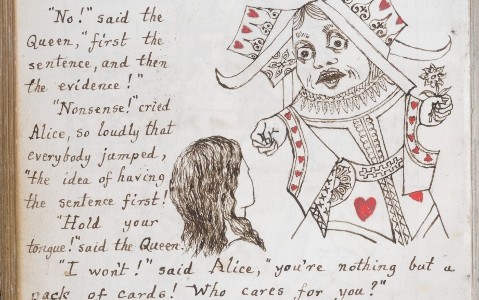 "No!" said the
Queen, "first the
sentence, and then
the evidence!"
"Nonsense!" cried
Alice, so loudly that
everybody jumped,
"the idea of having
the sentence first!
"Hold your
tongue!" said the Queen.
"I won't!" said Alice, "you're nothing but a
pack of cards! Who cares for you?"